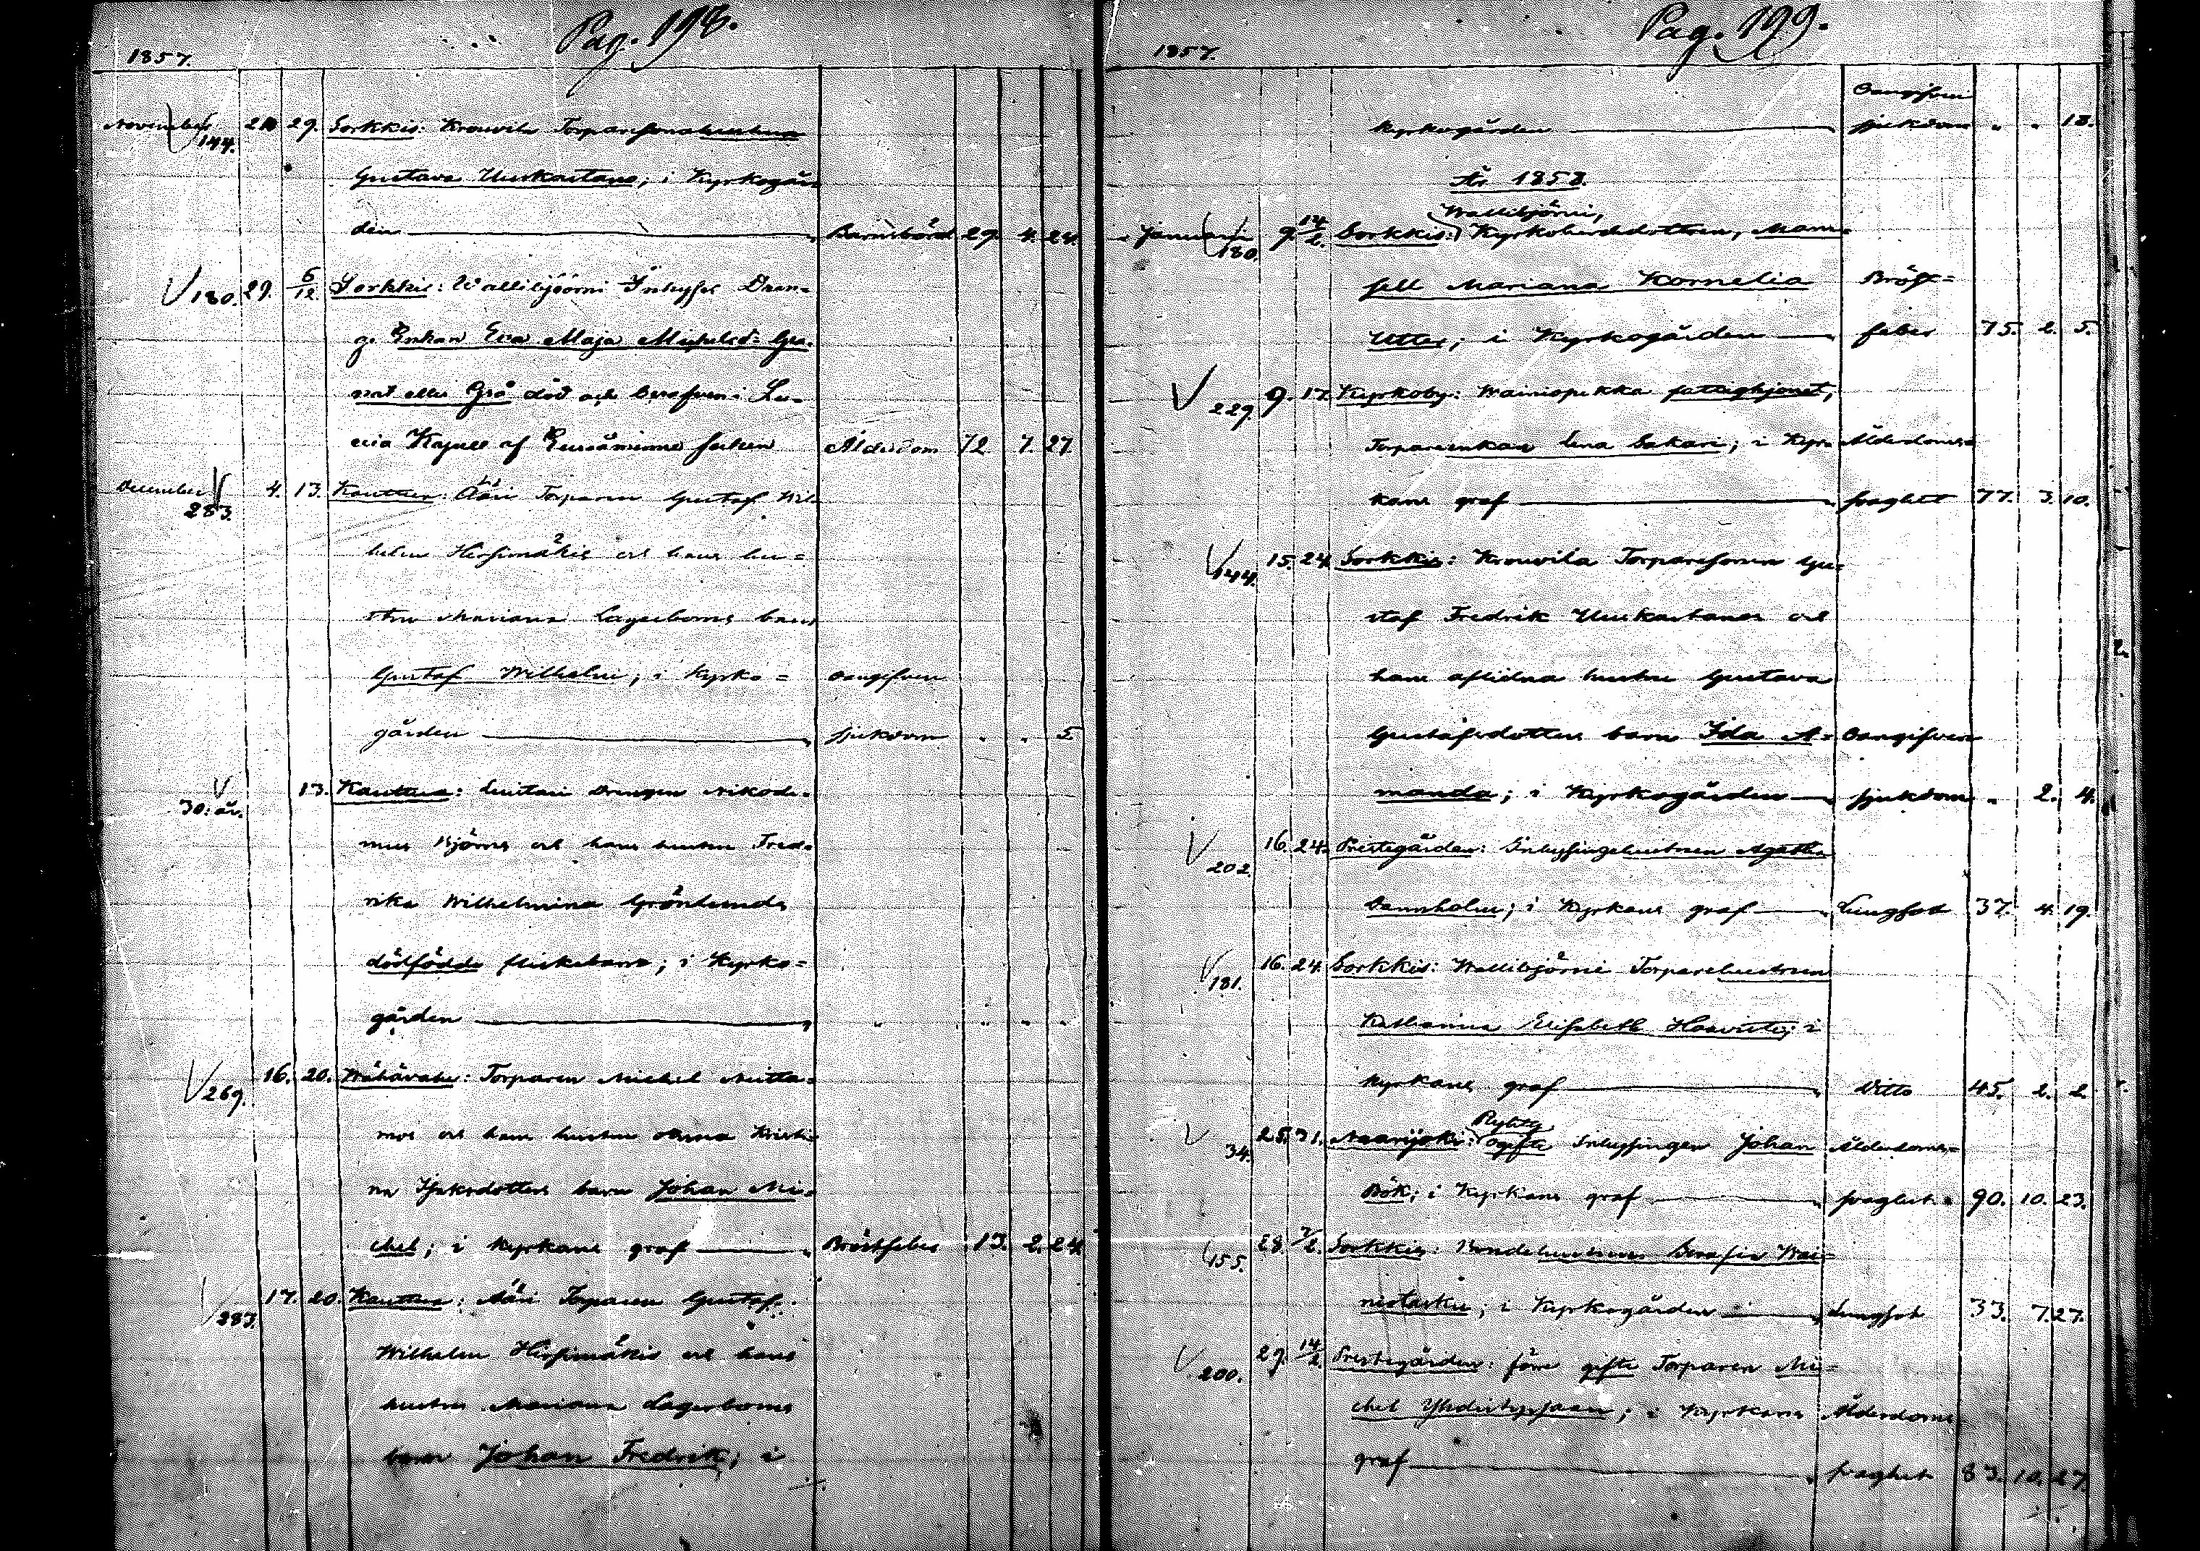 Pag. 198.
1857.
November 144. 21 29. Sorkkis: Krouvila Torparesonshustrun
Gustava Uuskartano; i Kyrkogår
den Barnsbörd 29. 4. 24.
180. 29. 6/12. Sorkkis: Wallibjörni Inhyses Dren-
g. Enkan Eva Maja Michelsd: Gra-
nat eller Grå död och begrafven i Lu-
via Kapell af Euråminne socken Ålderdom 72. 7. 27.
December 283. 4. 13. Kauttua: Ääri Torparen Gustaf Wil-
helm Hirsimäkis och hans hu-
stru Mariana Lagerboms barn
Gustaf Wilhelm; i Kyrko= Oangifven
gården sjukdom " " 5.
30: år. 13. Kauttua: Drengen Nikode-
mus Björns och hans hustru Fred-
rika Wilhelmina Grönlunds
dödfödda flickebarn; i Kyrko=
gården " " " "
269. 16. 20. Wähävahe: Torparen Michel
mos och hans hustru Anna Kristi-
na Isaksdotters barn Johan Mi-
chel; i Kyrkans graf Bröstfeber 13. 2. 24.
283. 17. 20. Kauttua: Ääri Torparen Gustaf
Wilhelm Hirsimäkis och hans
hustrus Mariana Lagerboms
barn Johan Fredrik; i
Pag. 199.
1857.
Oangifven
Kyrkogården sjukdom " " 18.
År 1858.
Wallibjörni,
Januari 180. 9. 14/2. Sorkkis: Kyrkoherdedottren, Mam-
sell Mariana Kornelia Bröst=
Utter; i Kyrkogården feber 75. 2. 5.
229. 9. 17. Kyrkoby: Wainionpekka fattighjonet,
Torpareenkan Lena Sakari; i Kyr- Ålderdoms=
kans graf svaghet 77. 3. 10.
144. 15. 24. Sorkkis: Krouvila Torparesonen Gu-
staf Fredrik Uuskartanos och
hans aflidna hustru Gustava
Gustafsdotters barn Ida A- Oangifven
manda; i Kyrkogården sjukdom " 2. 4.
202. 16. 24. Prestegården: Inhysingehustrun Agatha
Dannholm; i Kyrkans graf Lungsot 37. 4. 19.
181. 16. 24. Sorkkis: Wallibjörni Torparehustrun
Katharina Elisabeth Haavisto; i
Kyrkans graf Ditto 45. 2. 2.
Pyhity
34. 25. 31. Naarijoki: ogifte Inhysingen Johan Ålderdoms=
Bök; i Kyrkans graf svaghet 90. 10. 23.
155. 28. 7/2. Sorkkis: Bondehustrun Serafia Wai-
niotasku; i Kyrkogården Lungsot 33. 7. 27.
200. 29. 14/2. Prestegården: förr gifte Torparen Mi-
chel; i Kyrkans Ålderdoms
graf svaghet 83. 10. 27.